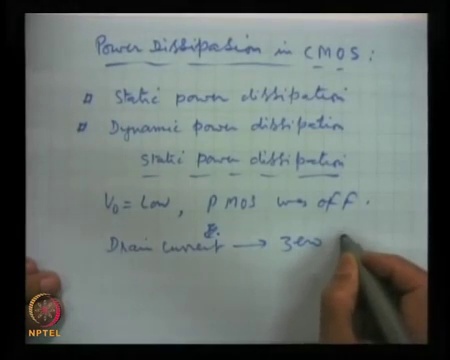 Power Dissipation in CMOS:
Static power dissipation
Dynamic power dissipation
static power dissipation
Vo = Low, PMOS was off.
Drain current → zero
NPTEL